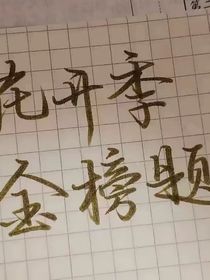 花开季
金榜题